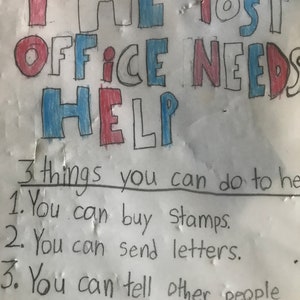 THE POST
OFFICE NEEDS
HELP
3 things you can do to he
1. You can buy stamps.
2. You can send letters.
3. You can tell other people